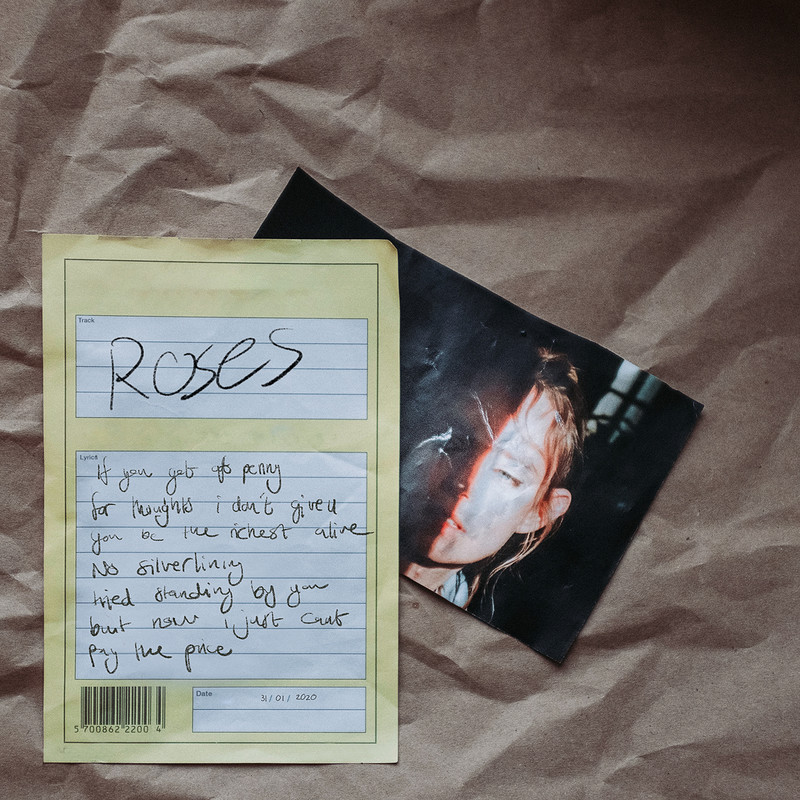 Track
Roses
Lyrics
If you get a penny
for thoughts i don't give u
you be the richest alive
No silverlining
tried standing by you
but now i just cant
pay the price
Date
31/01/2020
5 700862 2200 4